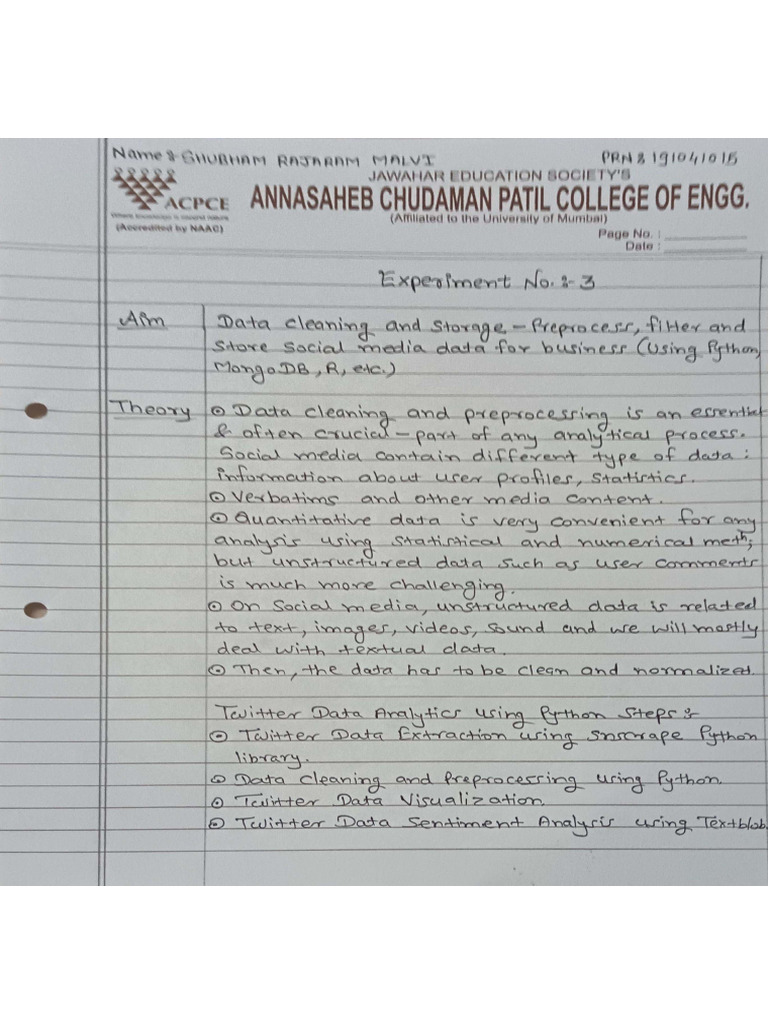 Name :- SHUBHAM RAJARAM MALVI
PRN : 191041015
JAWAHAR EDUCATION SOCIETY'S
ACPCE
ANNASAHEB CHUDAMAN PATIL COLLEGE OF ENGG.
(Affiliated to the University of Mumbai)
(Accredited by NAAC)
Page No. :
Date :
Experiment No. :- 3
Aim
Data cleaning and storage - Preprocess, filter and
store social media data for business (Using Python,
MongoDB, R, etc.)
Theory
⊙ Data cleaning and preprocessing is an essential
& often crucial - part of any analytical process.
Social media contain different type of data :
information about user profiles, statistics.
⊙ Verbatims and other media content.
⊙ Quantitative data is very convenient for any
analysis using statistical and numerical meth;
but unstructured data such as user comments
is much more challenging.
⊙ On social media, unstructured data is related
to text, images, videos, sound and we will mostly
deal with textual data.
⊙ Then, the data has to be clean and normalized.
Twitter Data Analytics using Python Steps :
⊙ Twitter Data Extraction using snscrape Python
library.
⊙ Data Cleaning and Preprocessing using Python.
⊙ Twitter Data Visualization.
⊙ Twitter Data Sentiment Analysis using Textblob.